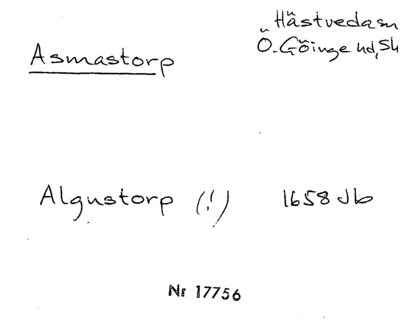 Hästveda sn
Asmastorp Ö. Göinge hd, Sk
Algustorp (!) 1658 Jb
Nr 17756